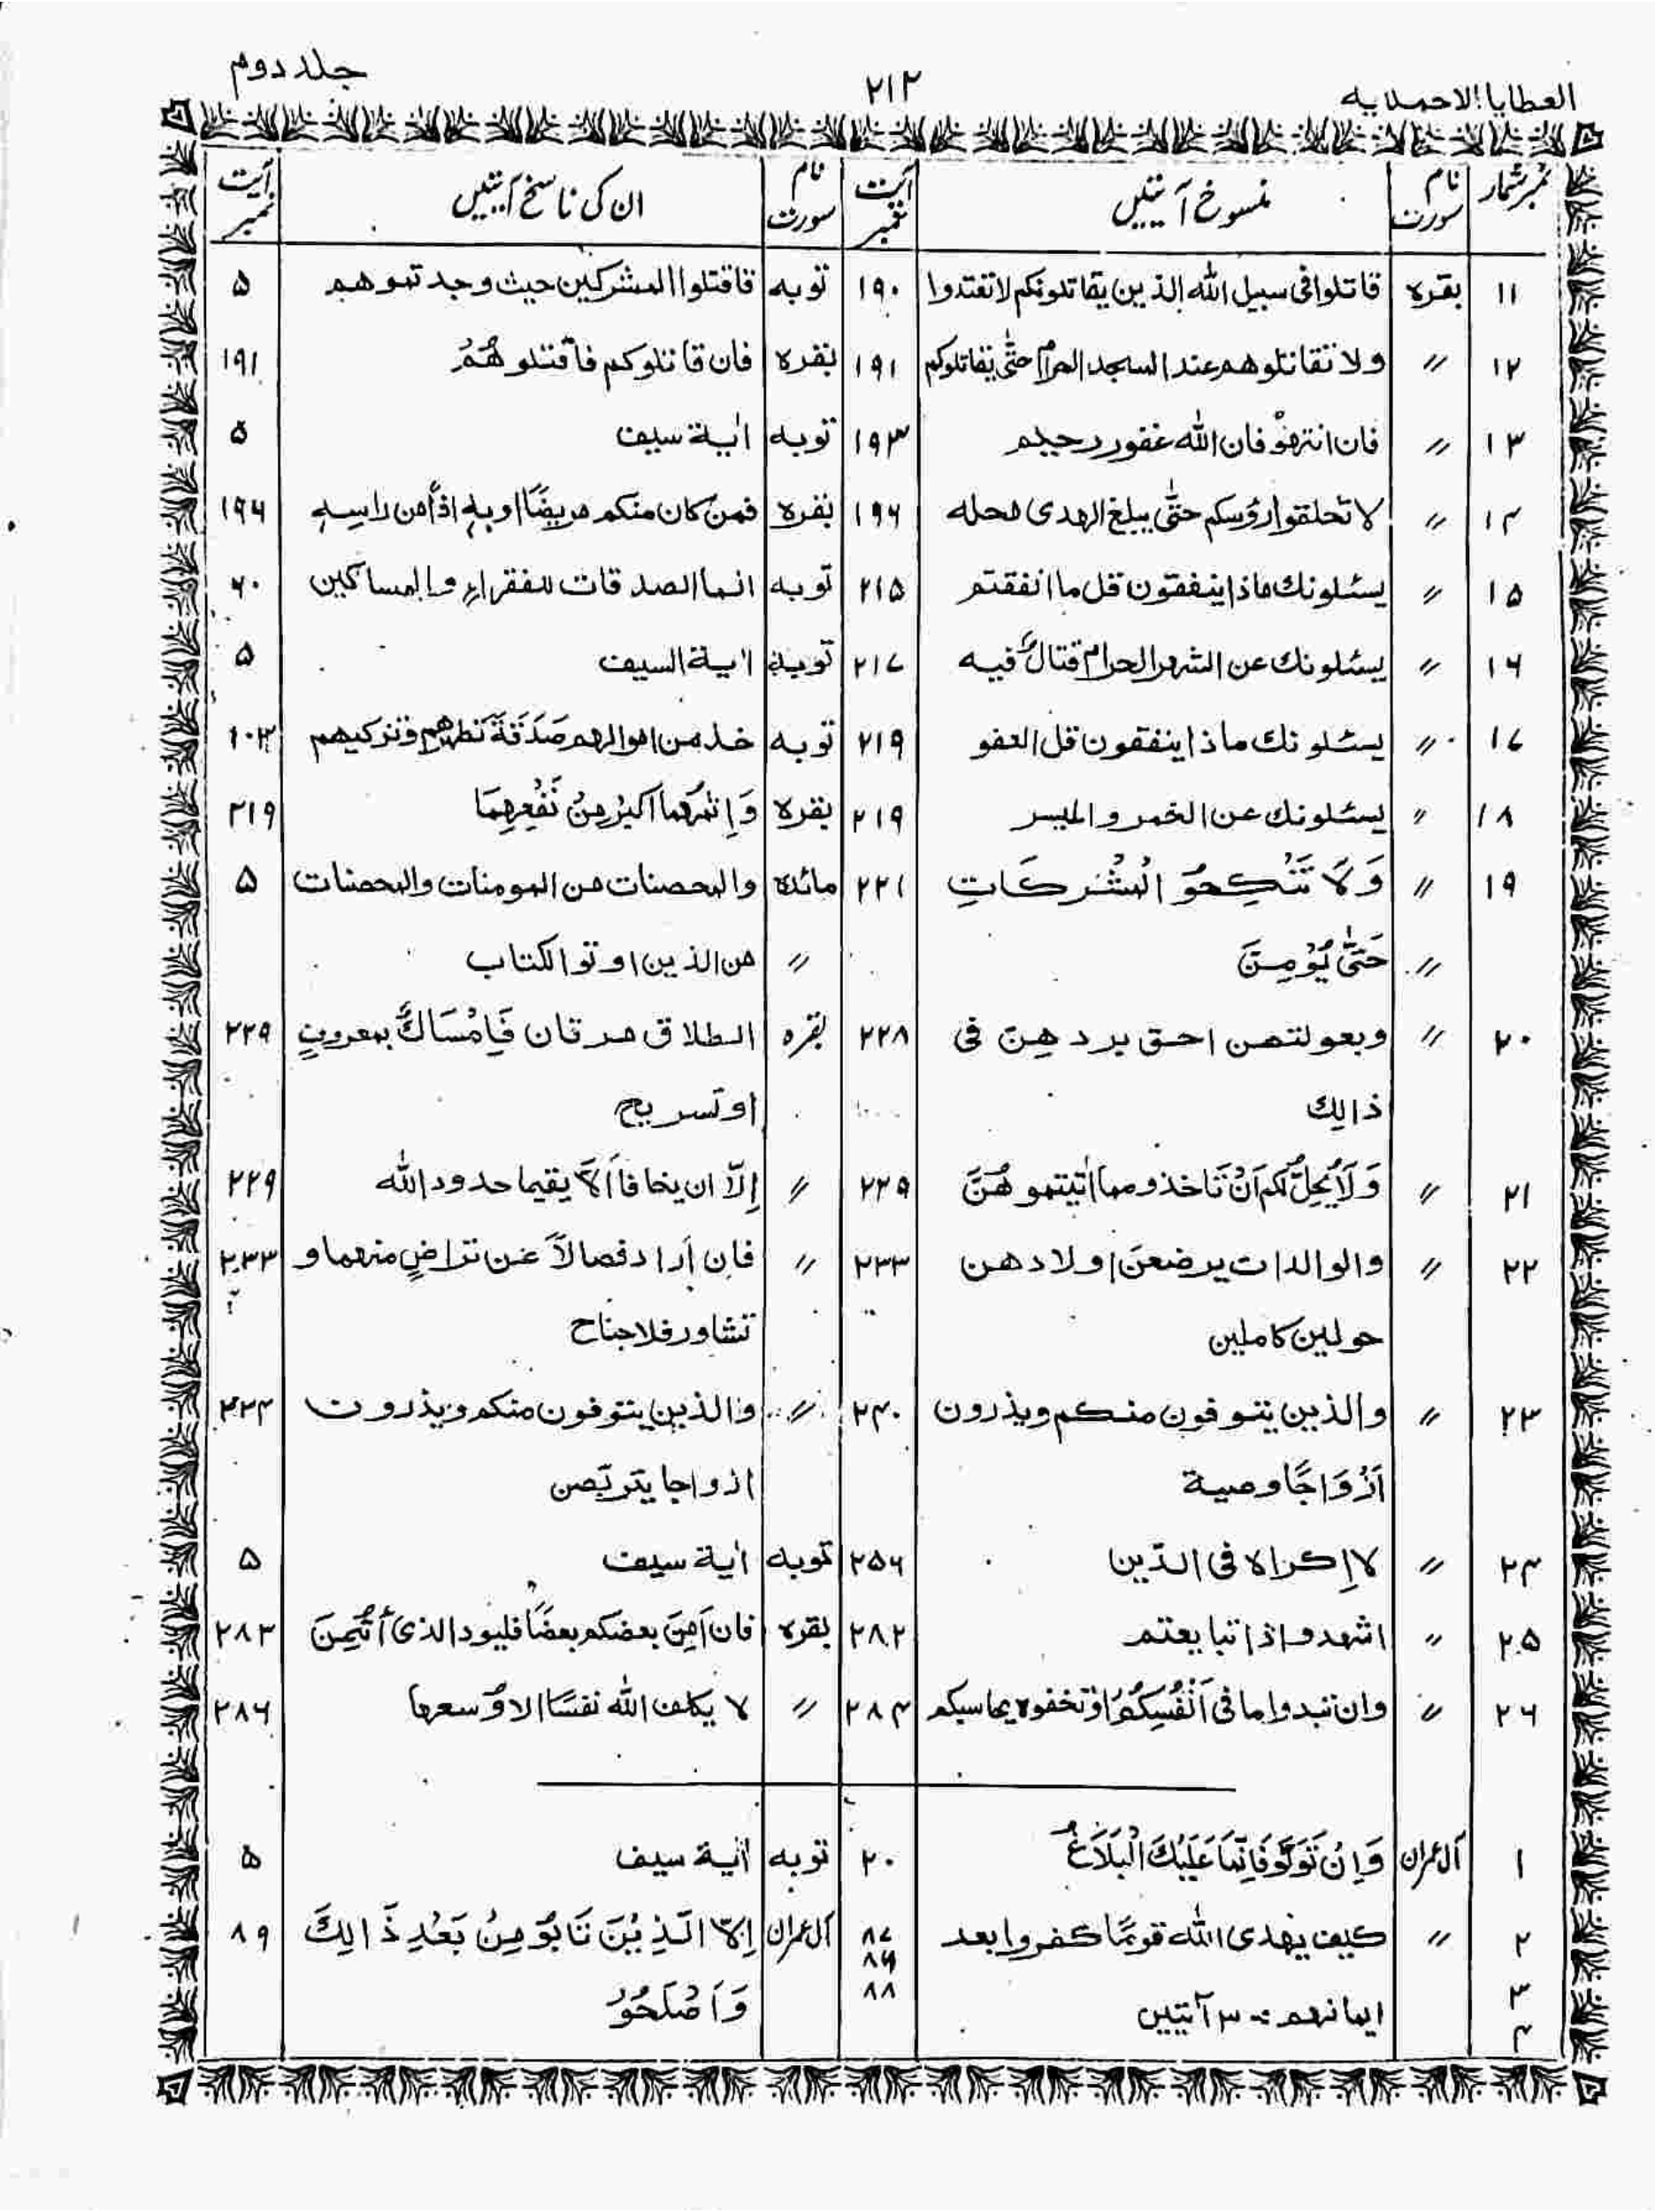 العطایا الاحمدیه ۲۱۲ جلد دوم
نمبر شمار نام سورت منسوخ آیتیں آیت نمبر نام سورت ان کی ناسخ آیتیں آیت نمبر
۱۱ بقره قاتلوا فی سبیل الله الذین یقاتلونکم لا تعتدوا ۱۹۰ توبه فاقتلوا المشرکین حیث وجدتموهم ۵
۱۲ // ولا تقاتلوهم عند المسجد الحرام حتّٰی یقاتلوکم ۱۹۱ بقره فان قاتلوکم فاقتلوهُمُ ۱۹۱
۱۳ // فان انتهوْ فان الله غفور رحیم ۱۹۳ توبه اٰیة سیف ۵
۱۴ // لا تحلقوا رؤسکم حتّٰی یبلغ الهدی محله ۱۹۶ بقره فمن کان منکم مریضًا او بهٖ اذًا من راسِهٖ ۱۹۶
۱۵ // یسئلونک ماذا ینفقون قل ما انفقتم ۲۱۵ توبه انما الصدقات للفقراء والمساکین ۶۰
۱۶ // یسئلونک عن الشهر الحرام قتالٌ فیه ۲۱۷ توبه اٰیة السیف ۵
۱۷ // یسئلونک ماذا ینفقون قل العفو ۲۱۹ توبه خذ من اموالهم صَدَقَةً تطهرهم وتزکیهم ۱۰۳
۱۸ // یسئلونک عن الخمر و المیسر ۲۱۹ بقره وَاِثمُهُما اکبرُ مِنْ نَّفْعِهِمَا ۲۱۹
۱۹ // وَلَا تَنْکِحُوْ الْمُشْرِکَاتِ ۲۲۱ مائده والمحصنات من المومنات والمحصنات ۵
// حَتّٰی یُؤْمِنَّ // من الذین اوتوا الکتاب
۲۰ // وبعولتهن احق بردهِنَّ فی ۲۲۸ بقره الطلاق مرتان فَاِمْسَاكٌ بمعروفٍ ۲۲۹
ذالِك او تسریح
۲۱ // وَلَا یُحِلُّ لَکُم اَنْ تَاخذو مما اٰتیتمو هُنَّ ۲۲۹ // اِلّا ان یخافا اَلَّا یقیما حدود الله ۲۲۹
۲۲ // والوالدات یرضعنَ اولادهن ۲۳۳ // فان اَرادا فصالاً عن تراضٍ منهما و ۲۳۳
حولین کاملین تشاور فلا جناح
۲۳ // والذین یتوفون منکم ویذرون ۲۴۰ // والذین یتوفون منکم ویذرون ۲۳۴
اَزْوَاجًا وصیة ازواجا یتربّصن
۲۴ // لا اِکراه فی الدّین ۲۵۶ توبه اٰیة سیف ۵
۲۵ // اشهدو اذا تبایعتم ۲۸۲ بقره فان اَمِنَ بعضکم بعضًا فلیود الذی اُئتُمِنَ ۲۸۳
۲۶ // وان تبدوا ما فی اَنْفُسِکُمْ اوتخفوه یحاسبکم ۲۸۴ // لا یکلف الله نفسًا الا وُسعها ۲۸۶
۱ اٰل عمران وَاِنْ تَوَلَّوْ فَاِنَّمَا عَلَیْكَ الْبَلَاغُ ۲۰ توبه اٰیة سیف ۵
۲ // کیف یهدی الله قومًا کفروا بعد ۸۷ اٰل عمران اِلَّا الَّذِیْنَ تَابُوْ مِنْ بَعْدِ ذَالِكَ ۸۹
۸۶
۳ ایمانهم :- ۳ آیتیں ۸۸ وَاَصْلَحُوْ
۴